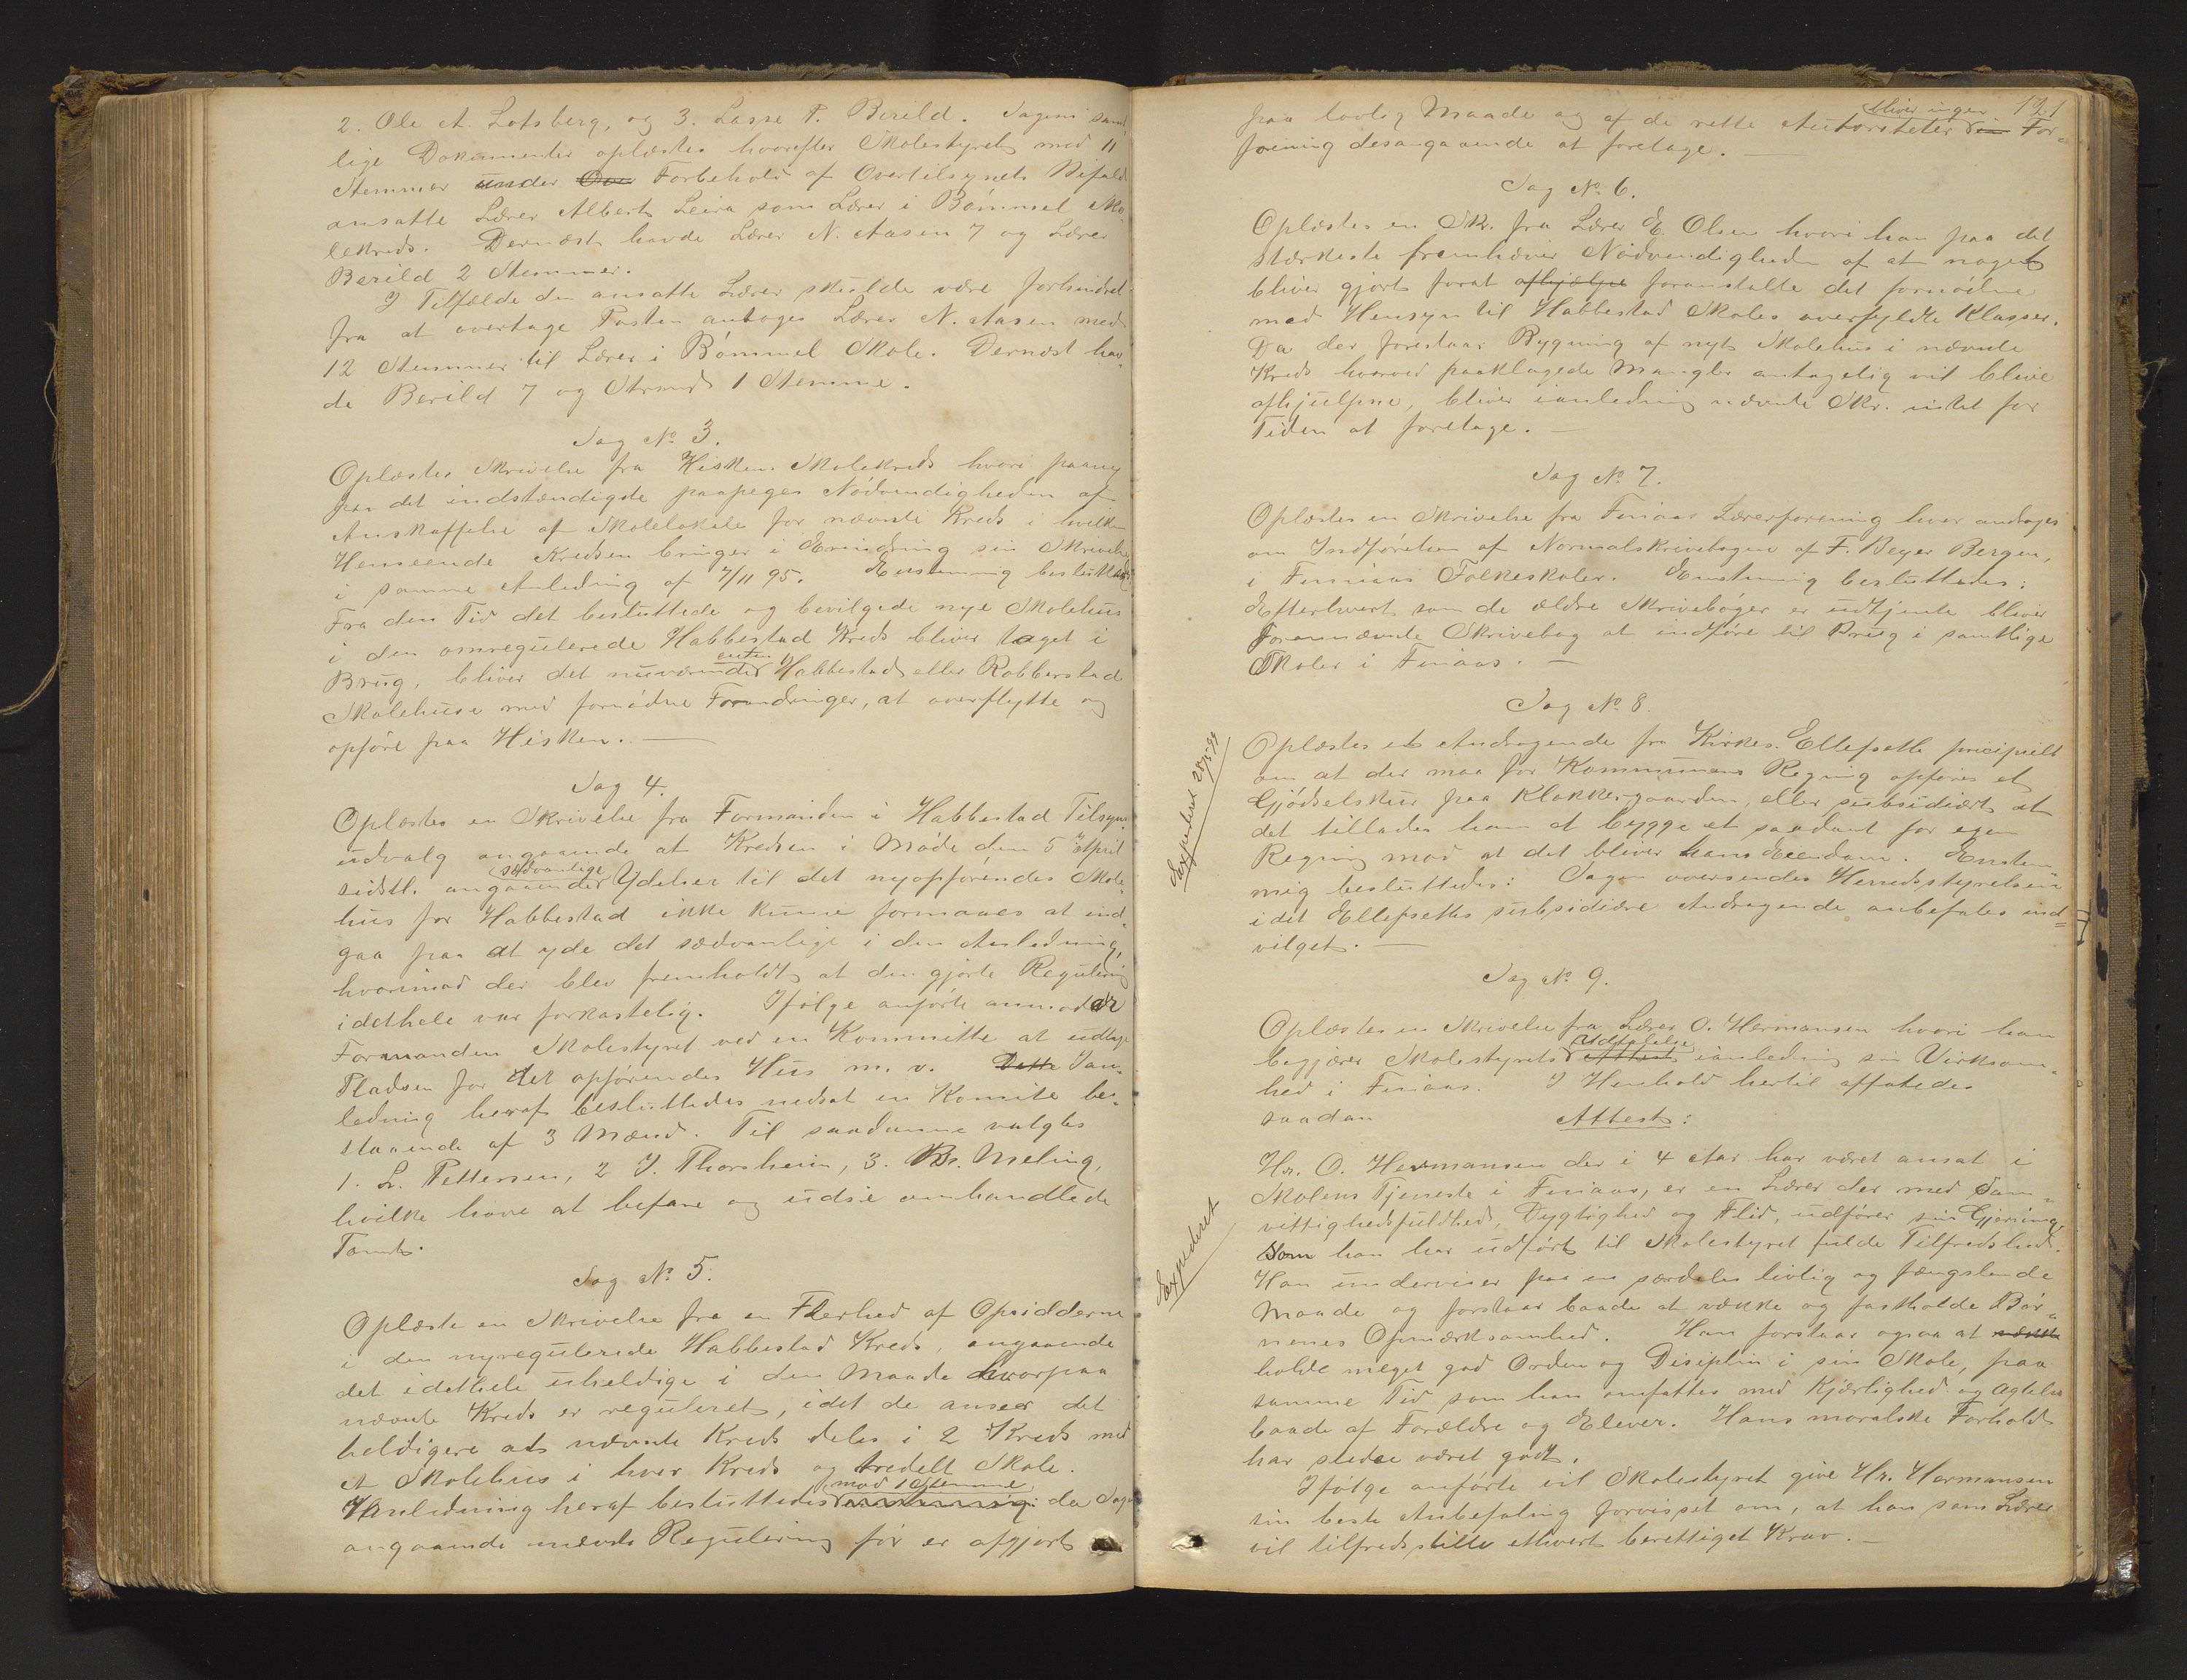 2. Ole A. Lotsberg, og 3. Lasse P. Berild. Sagens samt,
lige Dokumenter oplæstes hvorefter Skolestyret med 11
Stemmer under Forbehold af Overtilsynets Bifald
ansatte Lærer Albert Leira som Lærer i Bømmel Sko,
lekreds. Dernæst havde Lærer N. Aasen 7 og Lærer
Berild 2 Stemmer.
I Tilfælde den ansatte Lærer skulde være forhindret
fra at overtage Posten antoges Lærer N. Aasen med
12 Stemmer til Lærer i Bømmel Skole. Dernæst hav,
de Berild 7 og Strand 1 Stemme.
Sag No 3.
Oplæstes Skrivelse fra Hisken Skolekreds hvori paany
paa det indstændigste paapeges Nødvendigheden af
Anskaffelse af Skolelokale for nævnte Kreds i hvilken
Henseende Kredsen bringer i Erindring sin Skrivelse
i samme Anledning af 7/11 95. Enstemmig besluttedes:
Fra den Tid det besluttede og bevilgede nye Skolehus
i den omregulerede Habbestad Kreds bliver taget i
Brug, bliver det nuværende enten Habbestad eller Robberstad
Skolehuse med fornødne Forandringer, at overflytte og
opføre paa Hisken. —
Sag 4.
Oplæstes en Skrivelse fra Formanden i Habbestad Tilsyns,
udvalg angaaende at Kredsen i Møde den 5 April
sidstl. angaaende sædvanlige Ydelser til det nyopførendes Skole,
hus for Habbestad ikke kunne formaaes at ind,
gaa paa at yde det sædvanlige i den Anledning,
hvorimod der blev fremholdt at den gjorte Regulering
idethele var forkastelig. Ifølge anførte anmoder
Formanden Skolestyret ved en Kommitte at udtage
Pladsen for det opførendes Hus m. v. Dette I an,
ledning heraf besluttedes nedsat en Komite be,
staaende af 3 Mænd. Til saadanne valgtes
1. L. Pettersen, 2 J. Thorsheim, 3. Br. Meling,
hvilke have at befare og udse omhandlede
Tomt.
Sag No 5.
Oplæste en Skrivelse fra en Flerhed af Opsidderne
i den nyregulerede Habbestad Kreds, angaaende
det idethele uheldige i den Maade hvorpaa
nævnte Kreds er reguleret, idet de anser det
heldigere at nævnte Kreds deles i 2 Kreds med
et Skolehus i hver Kreds og tredelt Skole.
I Anledning heraf besluttedes mod 1 Stemme enstemmig: da Sagen
angaaende nævnte Regulering før er afgjort
121
paa lovlig Maade og af de rette Autoriteter bliver ingen For,
føining desangaaende at foretage. —
Sag No 6.
Oplæstes en Skr. fra Lærer E. Olsen hvori han paa det
stærkeste fremhæver Nødvendigheden af at noget
bliver gjort forat afhjælpe foranstalte det fornødne
med Hensyn til Habbestad Skoles overfyldte Klasser.
Da der forestaar Bygning af nyt Skolehus i nævnte
Kreds hvorved paaklagede Mangler antagelig vil blive
afhjulpne, bliver ianledning nævnte Skr. intet for
Tiden at foretage. —
Sag No 7.
Oplæstes en Skrivelse fra Finaas Lærerforening hvor andrages
om Indførelsen af Normalskrivebogen af F. Beyer Bergen,
i Finaas Folkeskoler. Enstemmig besluttedes:
Efterhvert som de ældre Skrivebøger er udtjente bliver
foranævnte Skrivebog at indføre til Brug i samtlige
Skoler i Finaas. —
Sag No 8.
Expederet 28/5-99
Oplæstes et Andragende fra Kirkes. Ellefsette pricipielt
om at der maa for Kommunens Regning opføres et
Gjødselskur paa Klokkergaarden, eller subsidiært at
det tillades ham at bygge et saadant for egen
Regning mod at det bliver hans Eiendom. Enstem
mig besluttedes: Sagen oversendes Herredsstyrelsen
idet Ellefsettes subsidiære Andragende anbefales ind=
vilget. —
Sag No 9.
Oplæstes en Skrivelse fra Lærer O. Hermansen hvori han
begjærer Skolestyrets Udtalelse Attest ianledning sin Virksom,
hed i Finaas. I Henhold hertil affatedes
saadan Attest:
Expederet
Hr. O. Hermansen der i 4 Aar har været ansat i
Skolens Tjeneste i Finaas, er en Lærer der med Sam,
vittighedsfuldhed, Dygtighed og Flid, udfører sin Gjerning,
Som han har udført til Skolestyret fulde Tilfredshed.
Han underviser paa en særdeles livlig og fængslende
Maade og forstaar baade at vække og fastholde Bør,
nenes Opmærksomhed. Han forstaar ogsaa at
holde meget god Orden og Disiplin i sin Skole, paa
samme Tid som han omfattes med Kjærlighed og Agtelse
baade af Forældre og Elever. Hans moralske Forhold
har stedse været godt.
Ifølge anførte vil Skolestyret give Hr. Hermansen
sin beste Anbefaling forvisset om, at han som Lærer
vil tilfredsstille ethvert berettiget Krav. —